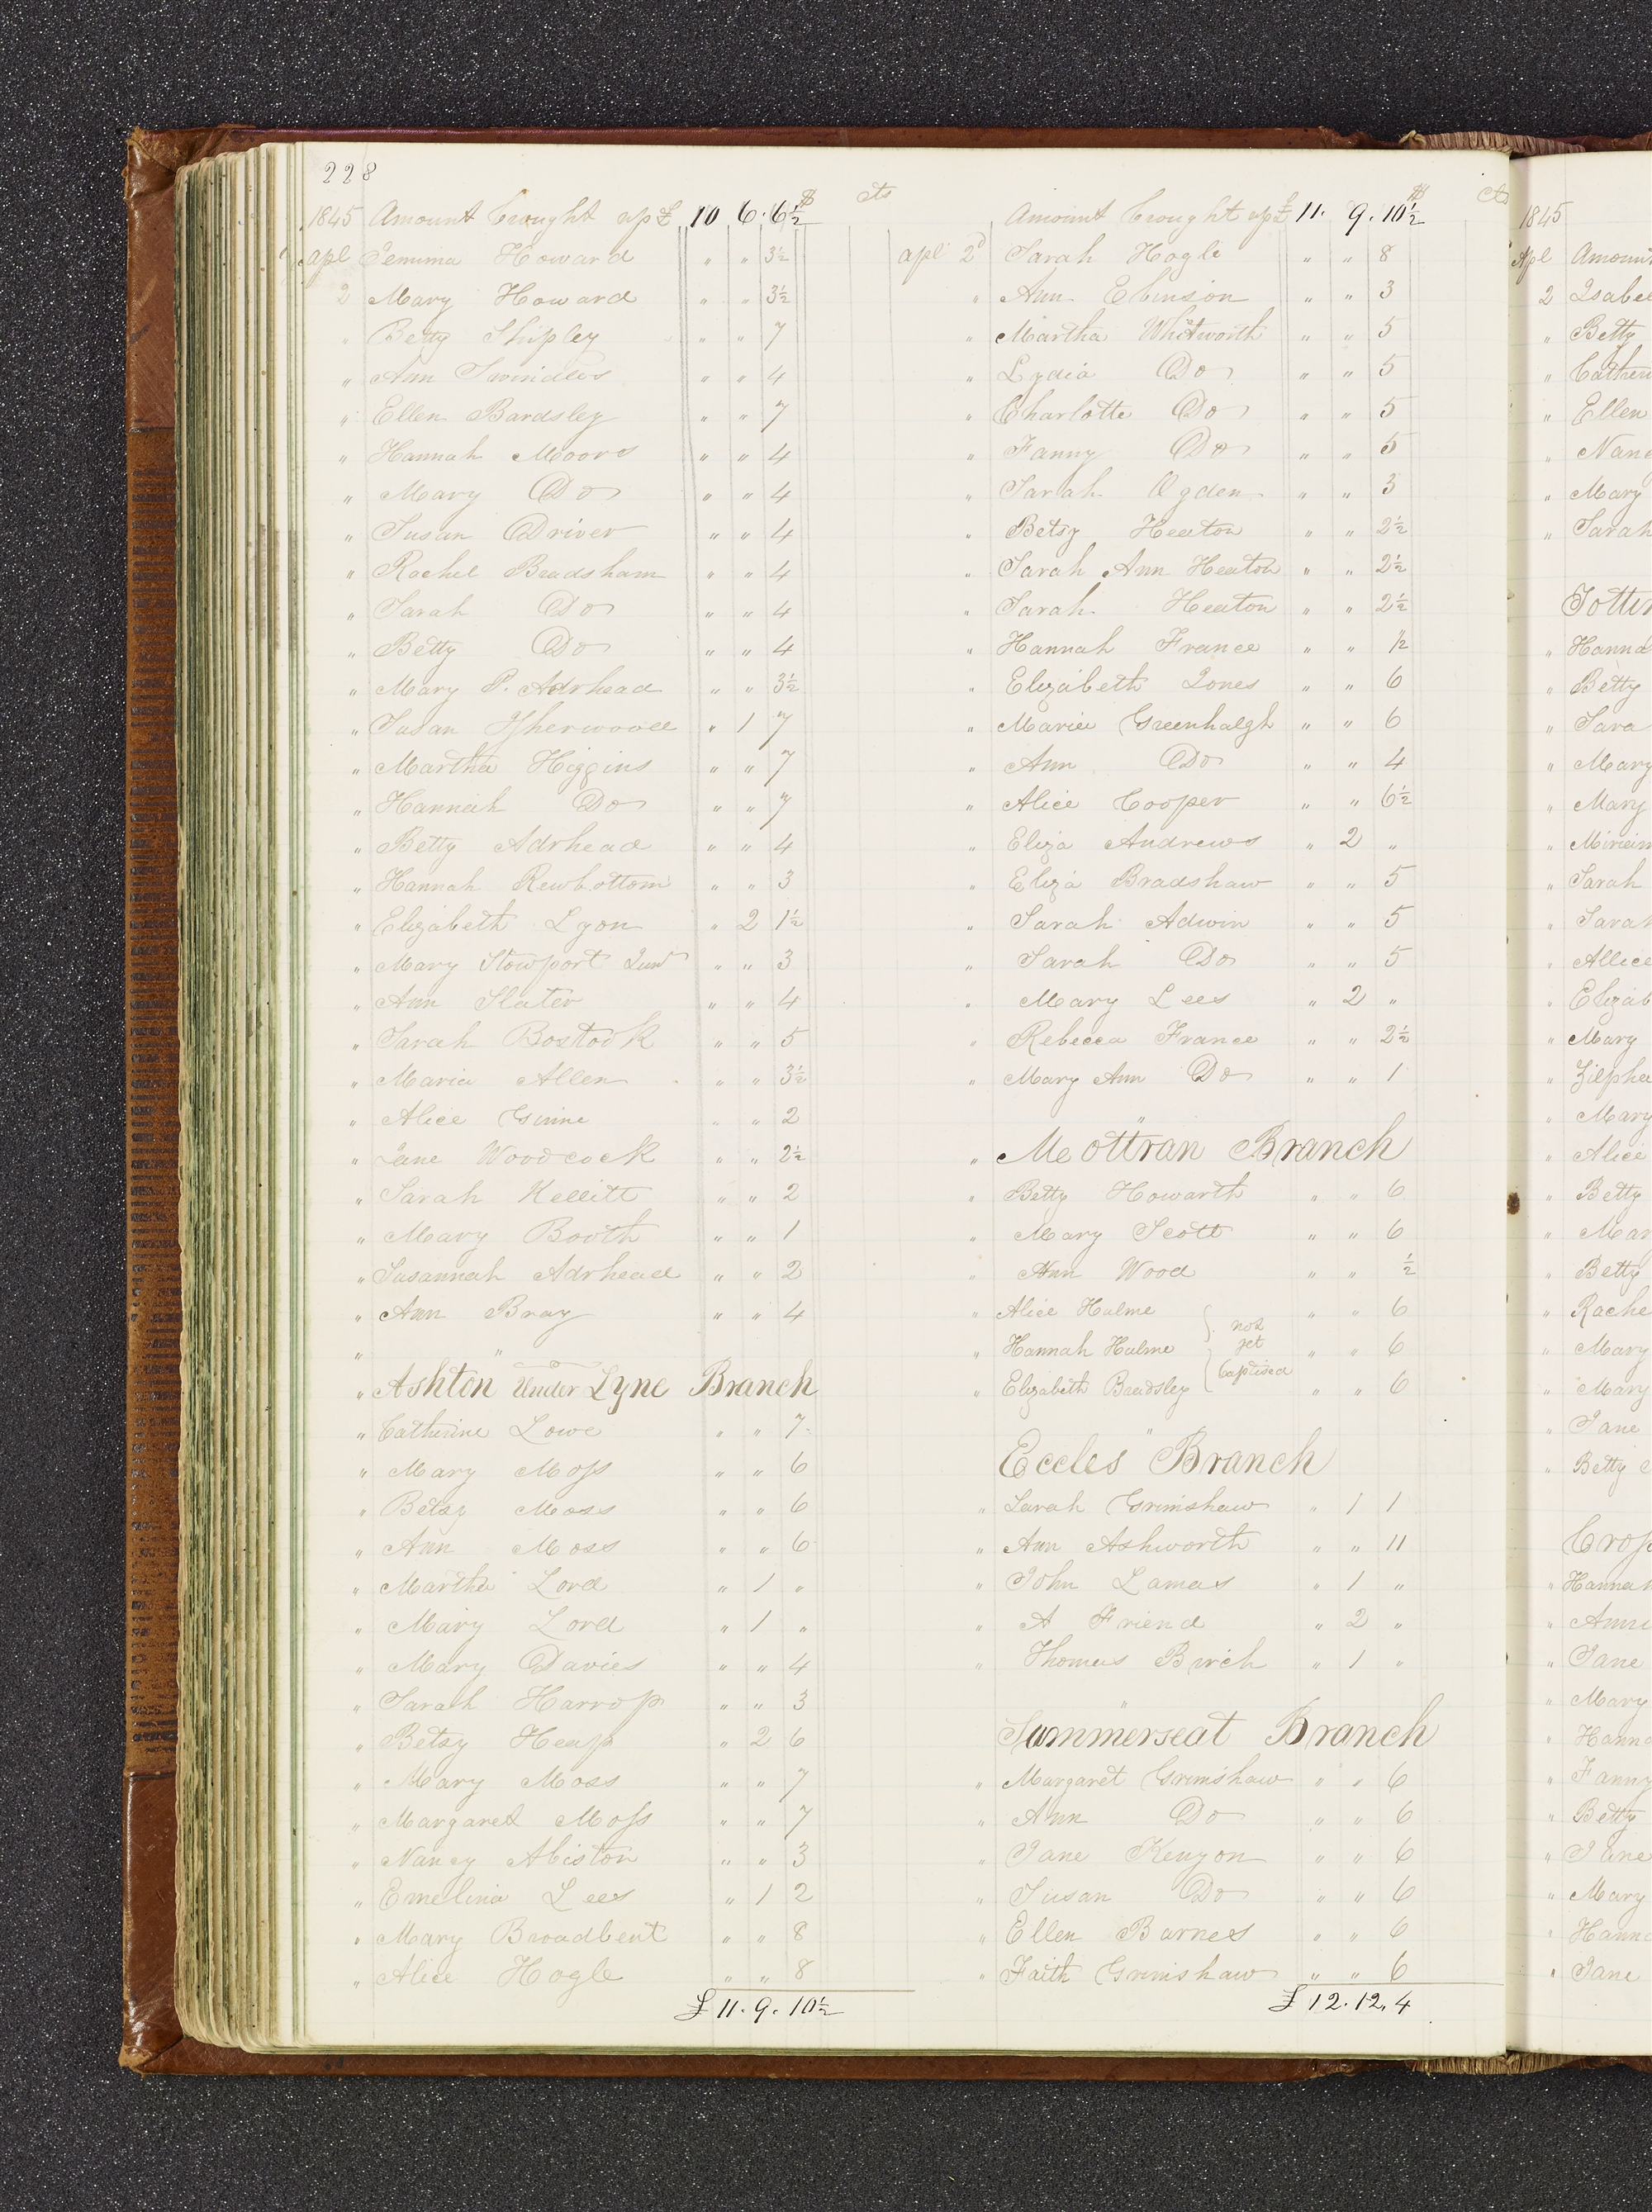 228
1845 Amount brought up £ 10 6. 6½ $ cts
Apl Jemima Howard " " 3½
2 Mary Howard " " 3½
" Betty Shipley " " 7
" Ann Swindles " " 4
" Ellen Bardsley " " 7
" Hannah Moors " " 4
" Mary Do " " 4
" Susan Driver " " 4
" Rachel Bradsham " " 4
" Sarah Do " " 4
" Betty Do " " 4
" Mary P. Adrhead " " 3½
" Susan Isherwood " 1 7
" Martha Higgins " " 7
" Hannah Do " " 7
" Betty Adrhead " " 4
" Hannah Rewbottom " " 3
" Elizabeth Lyon " 2 1½
" Mary Stowport Junr " " 3
" Ann Slater " " 4
" Sarah Bostock " " 5
" Maria Allen " " 3½
" Alice Ginne " " 2
" Jane Woodcock " " 2½
" Sarah Kellitt " " 2
" Mary Booth " " 1
" Susannah Adrhead " " 2
" Ann Bray " " 4
" "
" Ashton Under Lyne Branch
" Catherine Lowe " " 7
" Mary Moss " " 6
" Betsy Moss " " 6
" Ann Moss " " 6
" Martha Lord " 1 "
" Mary Lord " 1 "
" Mary Davies " " 4
" Sarah Harrop " " 3
" Betsy Heap " 2 6
" Mary Moss " " 7
" Margaret Moss " " 7
" Nancy Abiston " " 3
" Emelina Lees " 1 2
" Mary Broadbent " " 8
" Alice Hogle " " 8
£ 11. 9. 10½
Amount brought up £ 11. 9. 10½ $ cts
apl 2d Sarah Hogle " " 8
" Ann Ebinson " " 3
" Martha Whitworth " " 5
" Lydia Do " " 5
" Charlotte Do " " 5
" Fanny Do " " 5
" Sarah Ogden " " 3
" Betsy Heaton " " 2½
" Sarah Ann Heaton " " 2½
" Sarah Heaton " " 2½
" Hannah France " " ½
" Elizabeth Jones " " 6
" Maria Greenhalgh " " 6
" Ann Do " " 4
" Alice Cooper " " 6½
" Eliza Andrews " 2 "
" Eliza Bradshaw " " 5
" Sarah Adwin " " 5
" Sarah Do " " 5
" Mary Lees " 2 "
" Rebecca France " " 2½
" Mary Ann Do " " 1
"
" Mottran Branch
" Betty Howarth " " 6
" Mary Scott " " 6
" Ann Wood " " ½
" Alice Hulme " " 6
" Hannah Hulme " " 6
" Elizabeth Beadsley " " 6
not
yet
baptised
"
Eccles Branch
" Sarah Grimshaw " 1 1
" Ann Ashworth " " 11
" John Lamas " 1 "
" A Friend " 2 "
" Thomas Birch " 1 "
"
Summerseat Branch
" Margaret Grimshaw " " 6
" Ann Do " " 6
" Jane Kenyon " " 6
" Susan Do " " 6
" Ellen Barnes " " 6
" Faith Grimshaw " " 6
£ 12. 12. 4
1845
Apl Amount
2
" Betty
"
" Ellen
"
" Mary
" Sarah
"
" Betty
" Sara
" Mary
" Mary
"
" Sarah
" Sarah
" Allice
"
" Mary
" Zilpha
" Mary
" Alice
" Betty
"
" Betty
"
" Mary
" Mary
" Jane
" Betty
" Hannah
"
" Jane
" Mary
"
" Fanny
" Betty
" Jane
" Mary
"
" Jane